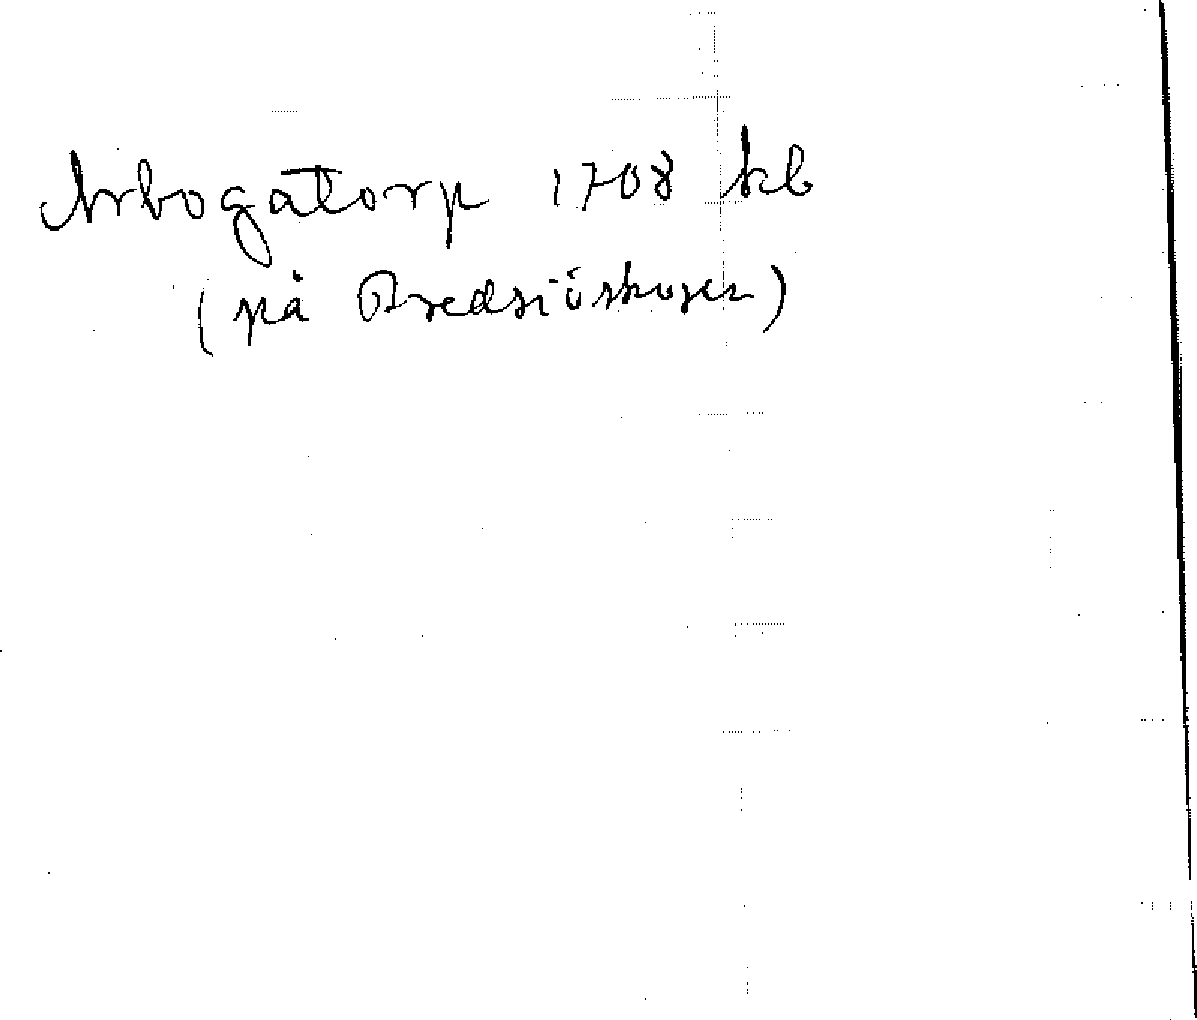 Arbogatorp 1708 kb
(på Bredsiöskogen)